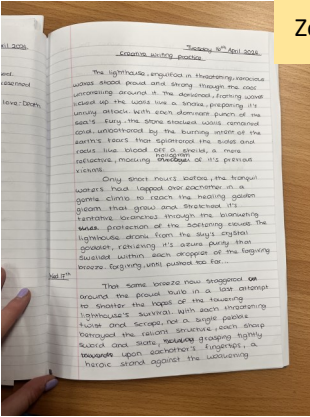 Ze
ril 2026
Tuesday April 2026
Creative writing practice
The lighthouse, engulfed in threatening, voracious
waves stood proud and strong through the
unravelling around it. The frothing waves
licked up the walls like a snake, preparing it's
unruly attack. With each dominant punch of the
sea's fury, the stone stacked walls remained
cold, unbothered by the burning intent of the
earth's tears that splattered the sides and
rocks like blood off a shield, a mere
hologram
reflective, mocking of it's previous
victims.
Only short hours before, the tranquil
waters had lapped over eachother in a
gentle climb to reach the healing golden
gleam that grew and stretched it's
tentative branches through the blanketing
protection of the softening clouds. The
lighthouse drank from the sky's crystal
goblet, retrieving it's azure purity that
swelled within each droplet of the forgiving
breeze. Forgiving, until pushed too far...
Wed 17th
That same breeze now staggered
around the proud build in a last attempt
to shatter the hopes of the towering
lighthouse's survival. With each threatening
twist and scrape, not a single pebble
betrayed the reliant structure, each sharp
sword and slate, grasping tightly
upon eachother's fingertips, a
heroic stand against the